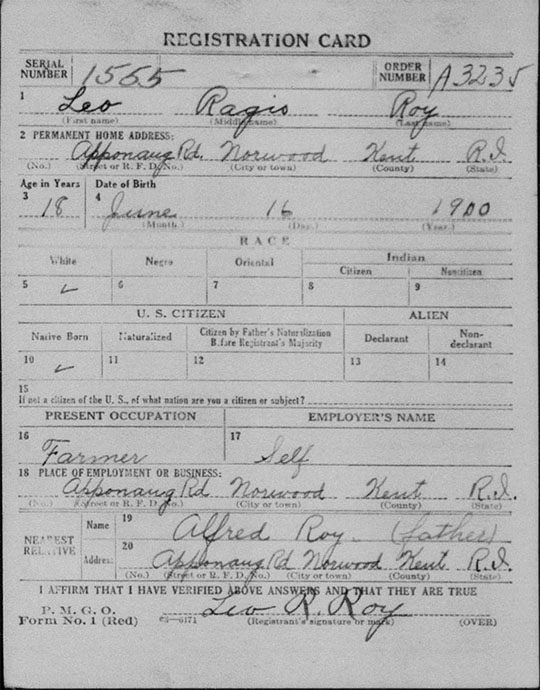 REGISTRATION CARD
SERIAL NUMBER 1565 ORDER NUMBER A3235
1 Leo Ragio Roy
(First name) (Middle name) (Last name)
2 PERMANENT HOME ADDRESS:
Apponaug Rd. Norwood Kent R.I.
(No.) (Street or R. F. D. No.) (City or town) (County) (State)
Age in Years Date of Birth
3 18 4 June 16 1900
(Month.) (Day.) (Year.)
RACE
White Negro Oriental Indian
Citizen Noncitizen
5 ✓ 6 7 8 9
U. S. CITIZEN ALIEN
Native Born Naturalized Citizen by Father's Naturalization Before Registrant's Majority Declarant Non-declarant
10 ✓ 11 12 13 14
15
If not a citizen of the U. S., of what nation are you a citizen or subject?
PRESENT OCCUPATION EMPLOYER'S NAME
16 Farmer 17 Self
18 PLACE OF EMPLOYMENT OR BUSINESS:
Apponaug Rd Norwood Kent R.I.
(No.) (Street or R. F. D. No.) (City or town) (County) (State)
NEAREST RELATIVE Name 19 Alfred Roy - (father)
Address 20 Apponaug Rd Norwood Kent R.I.
(No.) (Street or R. F. D. No.) (City or town) (County) (State)
I AFFIRM THAT I HAVE VERIFIED ABOVE ANSWERS AND THAT THEY ARE TRUE
P. M. G. O.
Form No. 1 (Red) 03-6171 Leo R. Roy
(Registrant's signature or mark) (OVER)